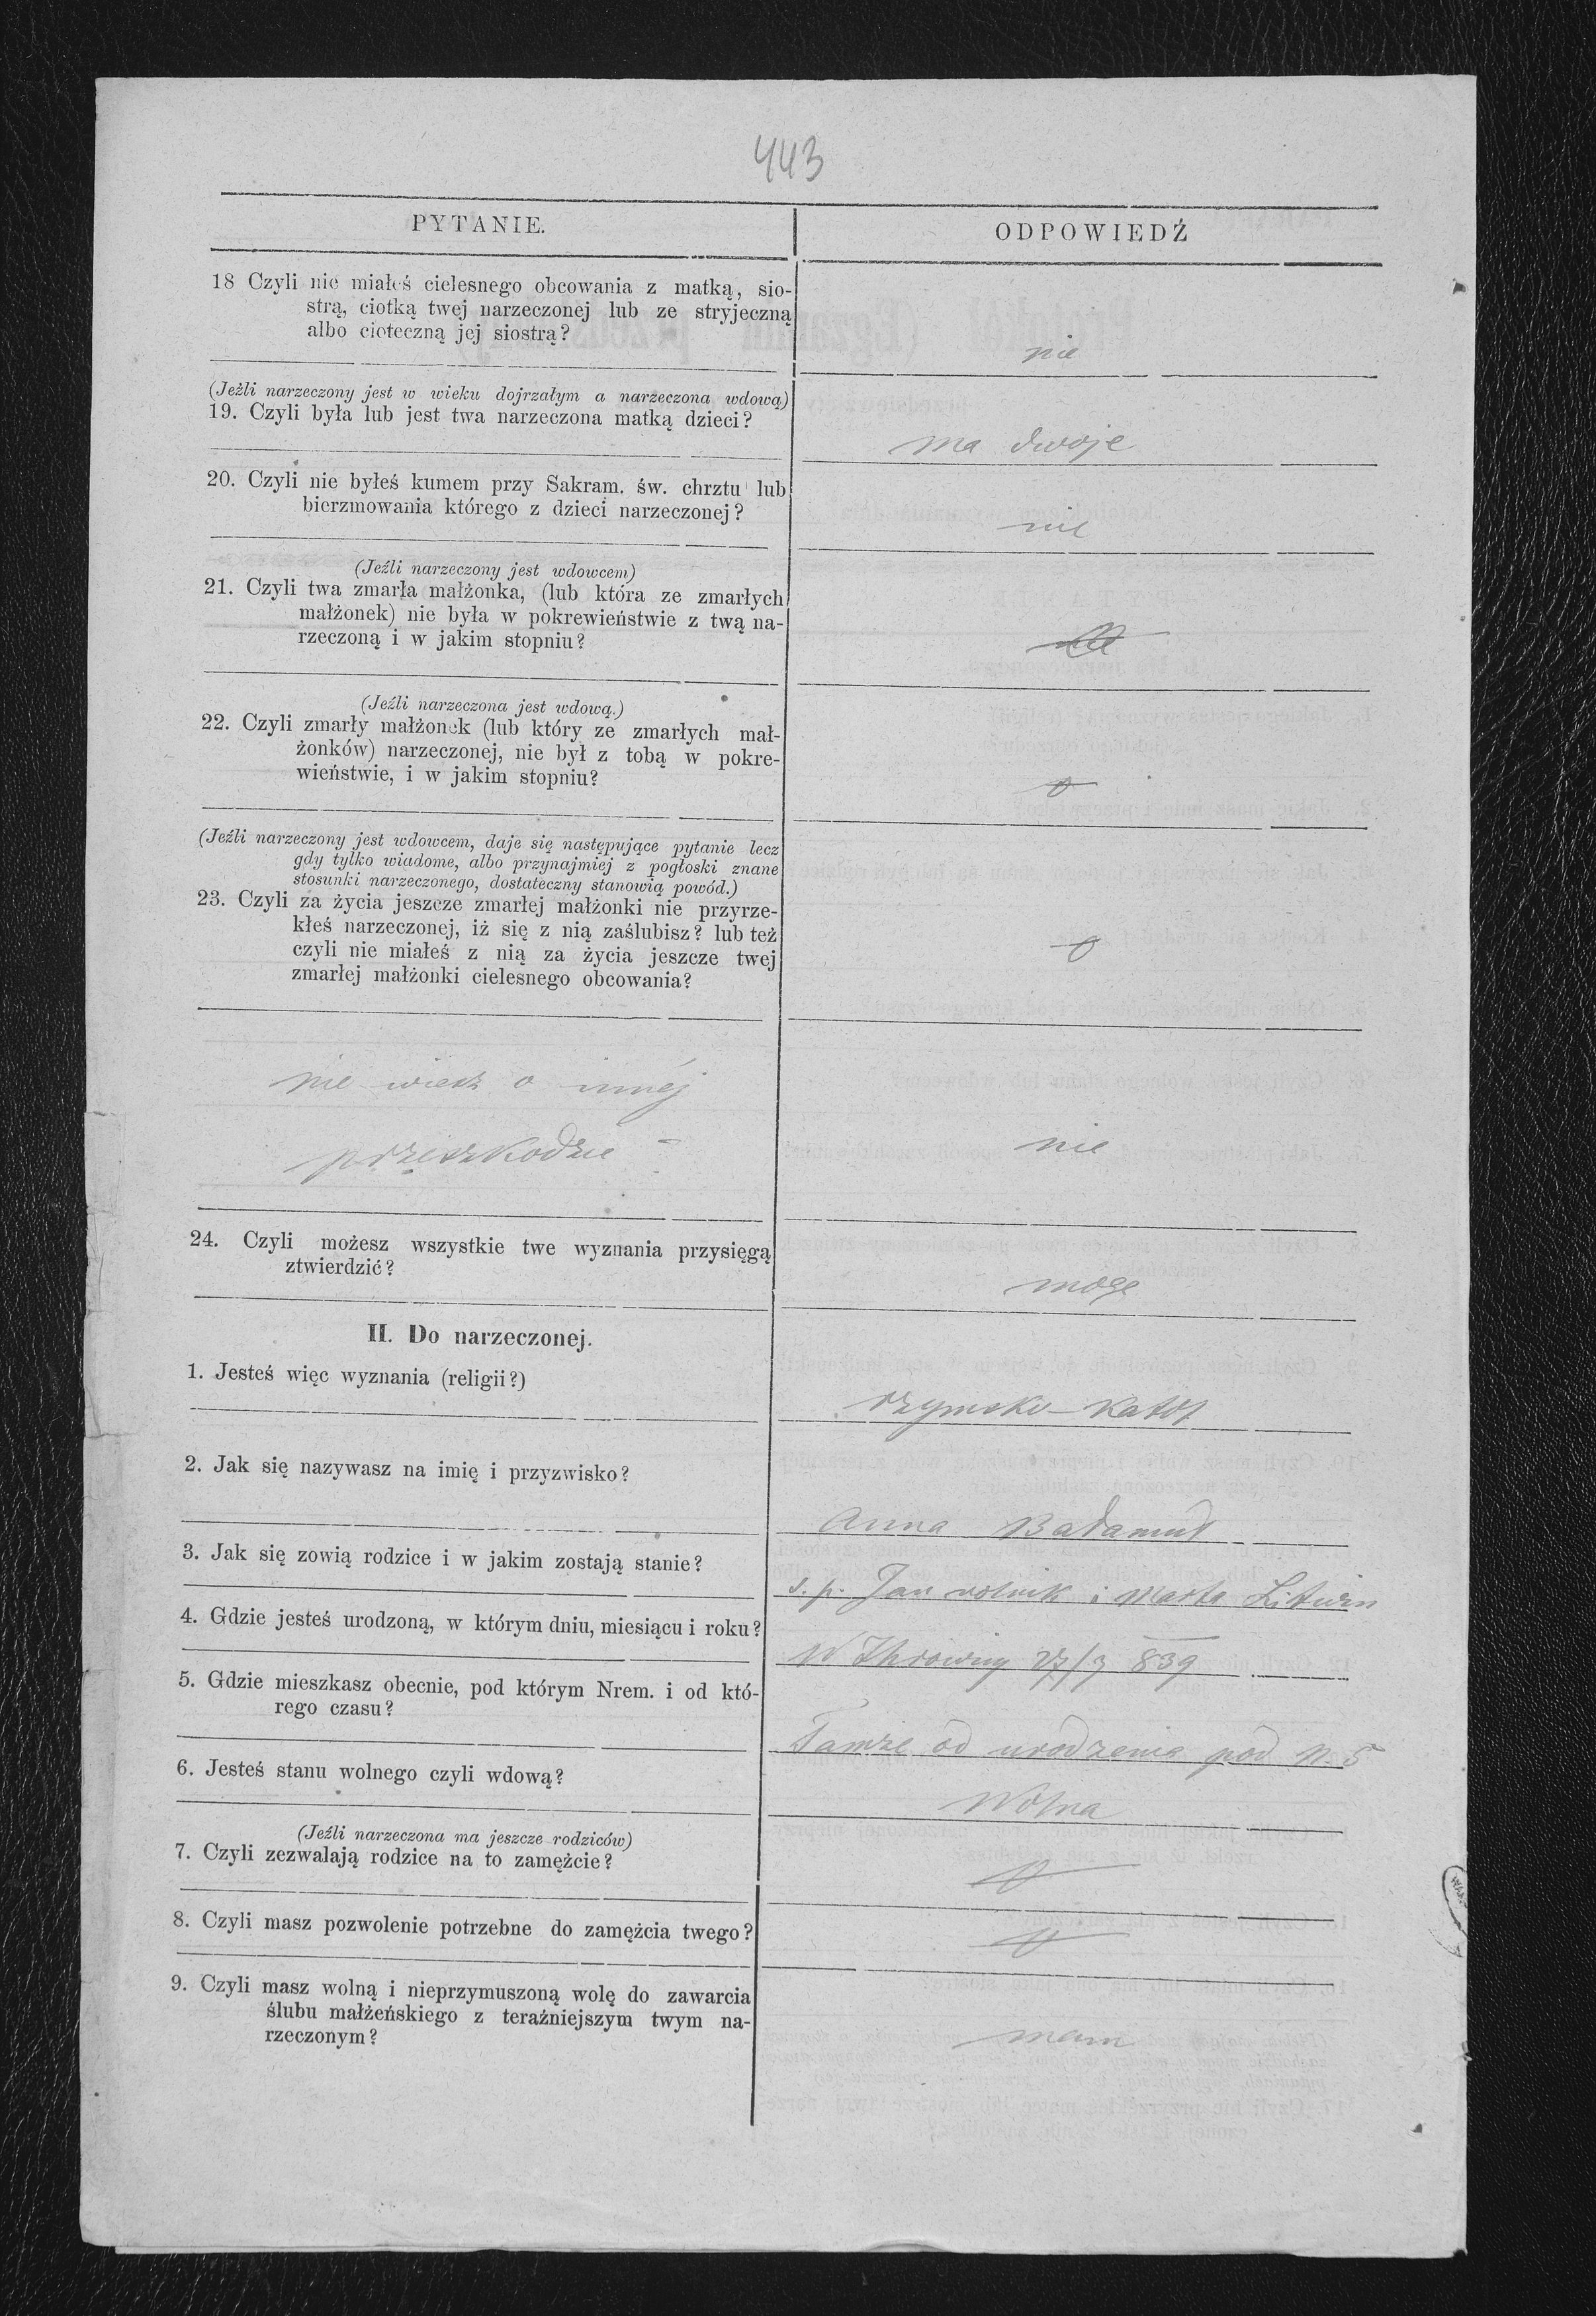 443
PYTANIE.
ODPOWIEDŹ
18 Czyli nie miałeś cielesnego obcowania z matką, sio-
strą, ciotką twej narzeczonej lub ze stryjeczną
albo cioteczną jej siostrą?
nie
(Jeżli narzeczony jest w wieku dojrzałym a narzeczona wdową)
19. Czyli była lub jest twa narzeczona matką dzieci?
ma dwoje
20. Czyli nie byłeś kumem przy Sakram. św. chrztu lub
bierzmowania którego z dzieci narzeczonej?
nie
(Jeźli narzeczony jest wdowcem)
21. Czyli twa zmarła małżonka, (lub która ze zmarłych
małżonek) nie była w pokrewieństwie z twą na-
rzeczoną i w jakim stopniu?
(Jeźli narzeczona jest wdową.)
22. Czyli zmarły małżonek (lub który ze zmarłych mał-
żonków) narzeczonej, nie był z tobą w pokre-
wieństwie, i w jakim stopniu?
(Jeźli narzeczony jest wdowcem, daje się następujące pytanie lecz
gdy tylko wiadome, albo przynajmiej z pogłoski znane
stosunki narzeczonego, dostateczny stanowią powód.)
23. Czyli za życia jeszcze zmarłej małżonki nie przyrze-
kłeś narzeczonej, iż się z nią zaślubisz? lub też
czyli nie miałeś z nią za życia jeszcze twej
zmarłej małżonki cielesnego obcowania?
nie wiesz o innéj
przeszkodzie
nie
24. Czyli możesz wszystkie twe wyznania przysięgą
ztwierdzić?
mogę
II. Do narzeczonej.
1. Jesteś więc wyznania (religii?)
rzymsko-katol
2. Jak się nazywasz na imię i przyzwisko?
Anna Bałamut
3. Jak się zowią rodzice i w jakim zostają stanie?
ś. p. Jan rolnik i Marta Litwin
4. Gdzie jesteś urodzoną, w którym dniu, miesiącu i roku?
839
5. Gdzie mieszkasz obecnie, pod którym Nrem. i od któ-
rego czasu?
Tamże od urodzenia pod N. 5
6. Jesteś stanu wolnego czyli wdową?
Wolna
(Jeźli narzeczona ma jeszcze rodziców)
7. Czyli zezwalają rodzice na to zamężcie?
8. Czyli masz pozwolenie potrzebne do zamężcia twego?
9. Czyli masz wolną i nieprzymuszoną wolę do zawarcia
ślubu małżeńskiego z teraźniejszym twym na-
rzeczonym?
mam